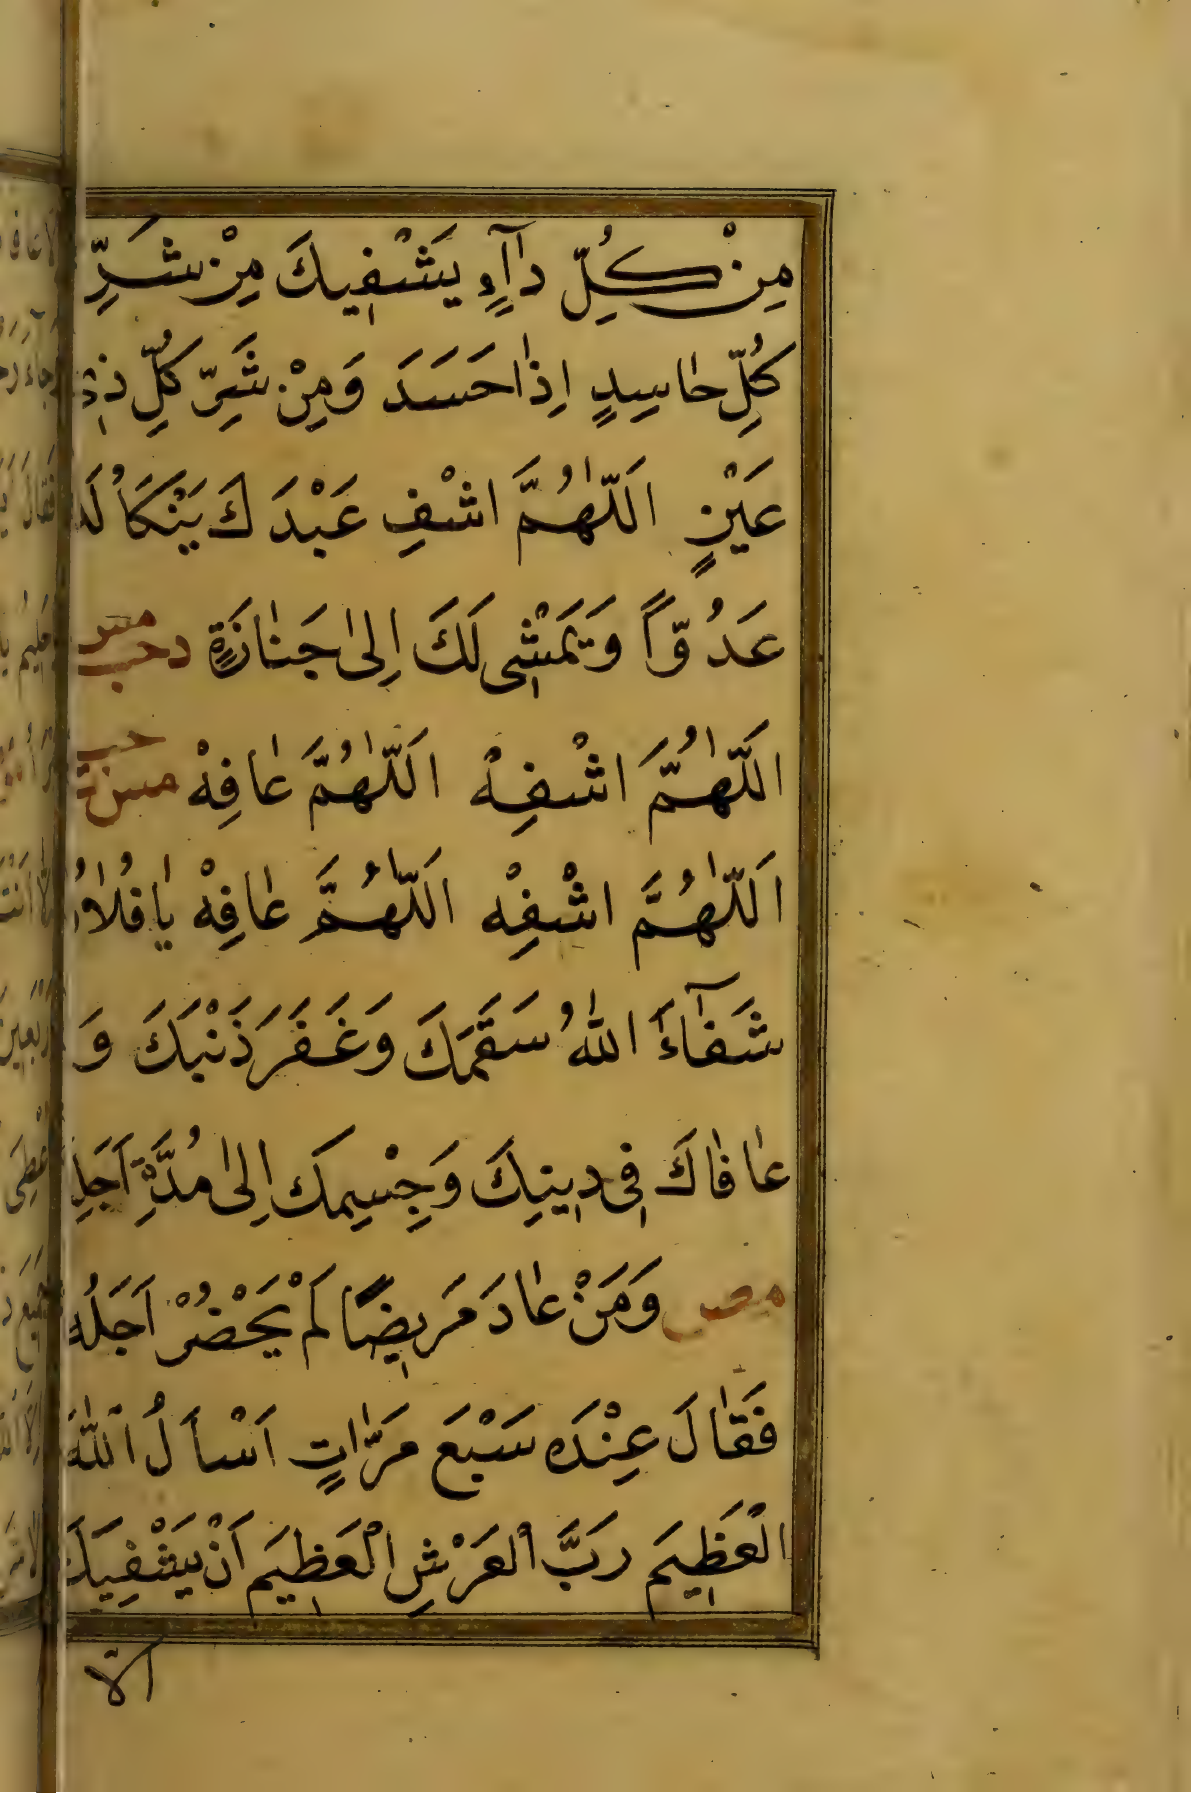 مِنْ كُلِّ دَآءٍ يَشْفِيكَ مِنْ شَرِّ
كُلِّ حَاسِدٍ اِذَا حَسَدَ وَمِنْ شَرِّ كُلِّ ذِي
عَيْنٍ اَللّٰهُمَّ اشْفِ عَبْدَكَ يَنْكَأْ لَكَ
عَدُوّاً وَيَمْشِي لَكَ اِلٰى جَنَازَةٍ د حب مس
اَللّٰهُمَّ اشْفِهْ اَللّٰهُمَّ عَافِهْ مس حب
اَللّٰهُمَّ اشْفِهْ اَللّٰهُمَّ عَافِهْ يَا فُلَانُ
شَفَآءَ اللّٰهُ سَقَمَكَ وَغَفَرَ ذَنْبَكَ وَ
عَافَاكَ فِي دِينِكَ وَجِسْمِكَ اِلٰى مُدَّةِ اَجَلِ
مص وَمَنْ عَادَ مَرِيضًا لَمْ يَحْضُرْ اَجَلُهُ
فَقَالَ عِنْدَهُ سَبْعَ مَرَّاتٍ اَسْأَلُ اللّٰهَ
الْعَظِيمَ رَبَّ الْعَرْشِ الْعَظِيمِ اَنْ يَشْفِيَكَ
الا